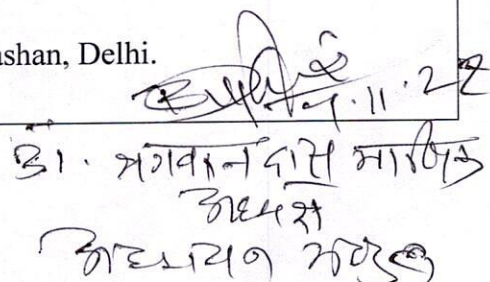 ashan, Delhi.
.11.22
डॉ. भगवानदास माणिक
अध्यक्ष
अध्ययन मण्डल